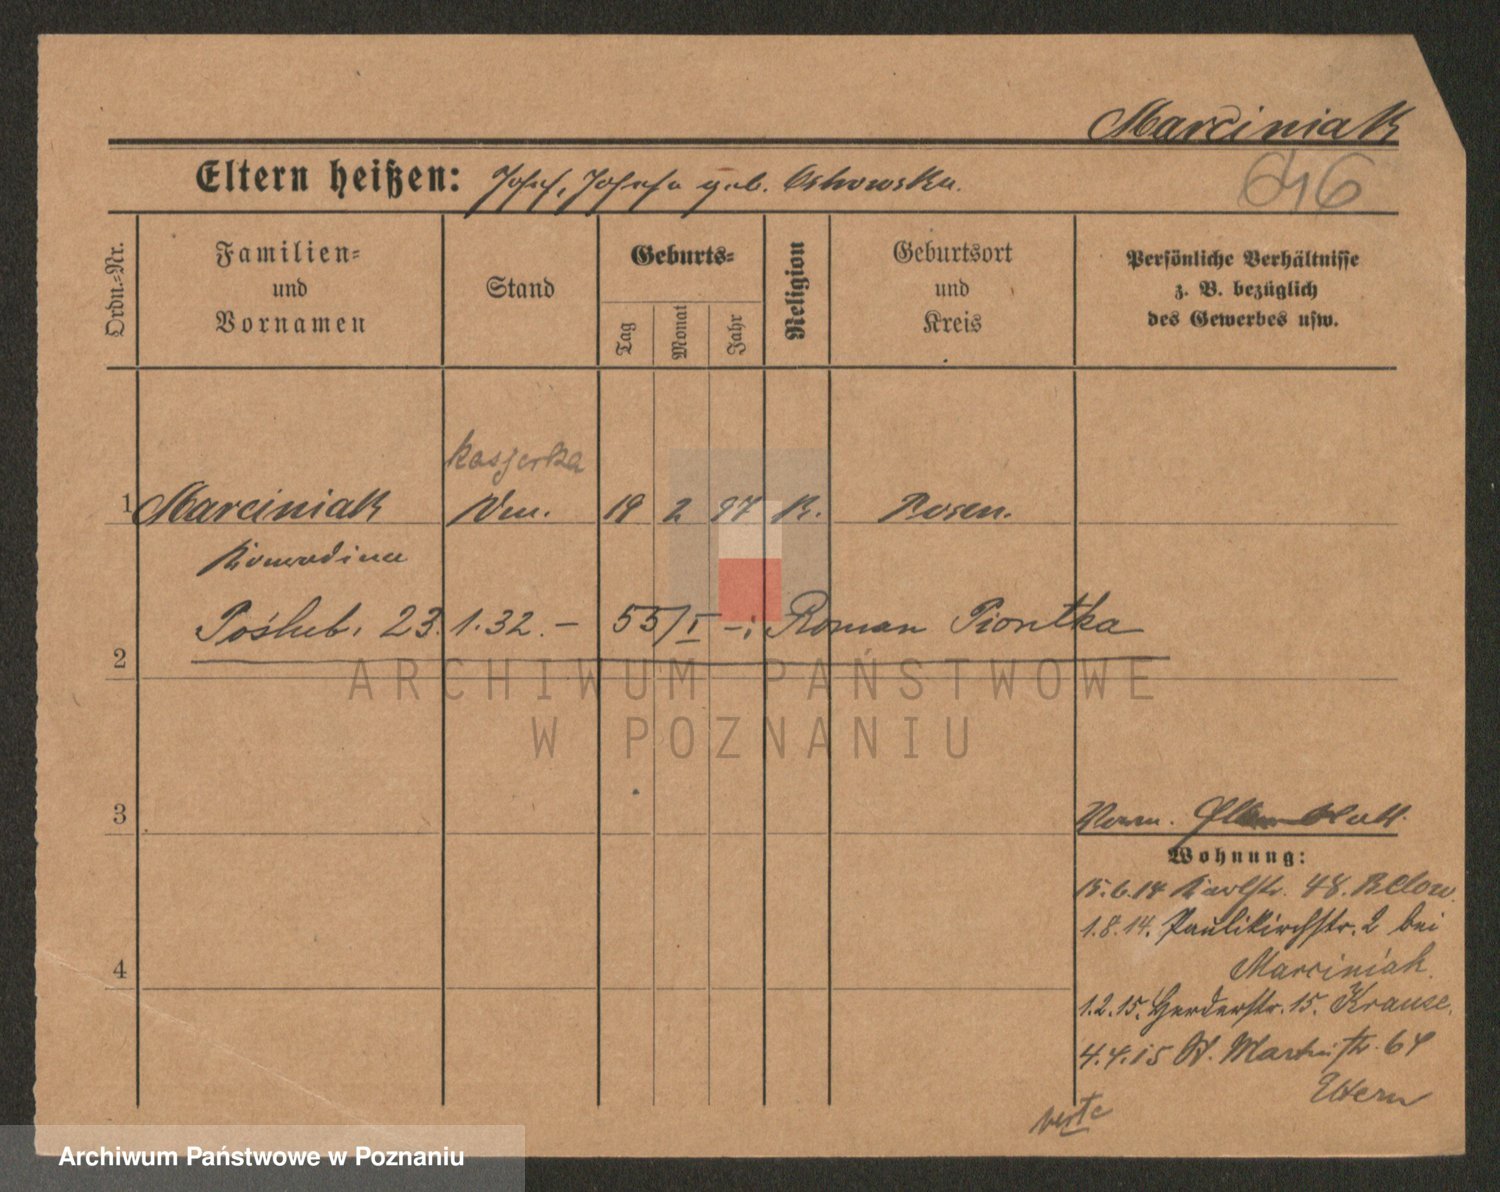 Marciniak
Eltern heißen: Josef, Josefa geb. Ostrowska.
Ordn.=Nr.
Familien=
und
Vornamen
Stand
Geburts=
Tag
Monat
Jahr
Religion
Geburtsort
und
Kreis
Persönliche Verhältnisse
z. B. bezüglich
des Gewerbes usw.
kasjerka
1 Marciniak 19 2 97 K. Posen.
Poślub. 23.1.32. – 55/I –; Roman Piontka
2
ARCHIWUM PAŃSTWOWE
W POZNANIU
3
Wohnung:
15.6.14 Karlstr. 48. Below.
1.8.14. Paulikirchstr. 2 bei
Marciniak.
4
1.2.15. Herderstr. 15. Krause.
4.4.15 St. Martinstr. 64
Eltern
verte
Archiwum Państwowe w Poznaniu